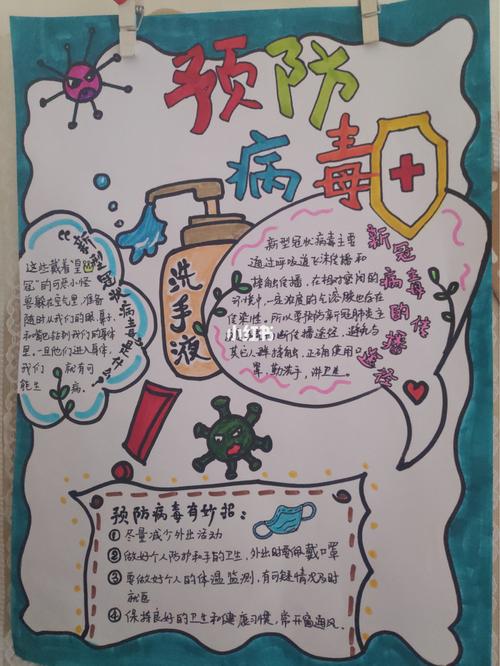 预防
病毒
洗手液
小红书
新型冠状病毒是什么?
这些戴着"皇
冠"的可恶小怪
兽躲在空气里,准备
随时从我们的眼、鼻子
和嘴巴钻到我们的身体
里,一旦他们进入身体,
我们就有可
能生病。
新冠病毒的传播途径
新型冠状病毒主要
通过呼吸道飞沫传播和
接触传播,在相对密闭的
环境中,一旦浓度的气溶胶也存在
传染性。所以要预防新冠肺炎主
断传播途径,避免与
其它人群接触,正确使用口
罩,勤洗手,讲卫生。
预防病毒有妙招:
①尽量减少外出活动
②做好个人防护和手的卫生,外出时要佩戴口罩
③要做好个人的体温监测,有可疑情况及时
就医
④保持良好的卫生和健康习惯,常开窗通风.